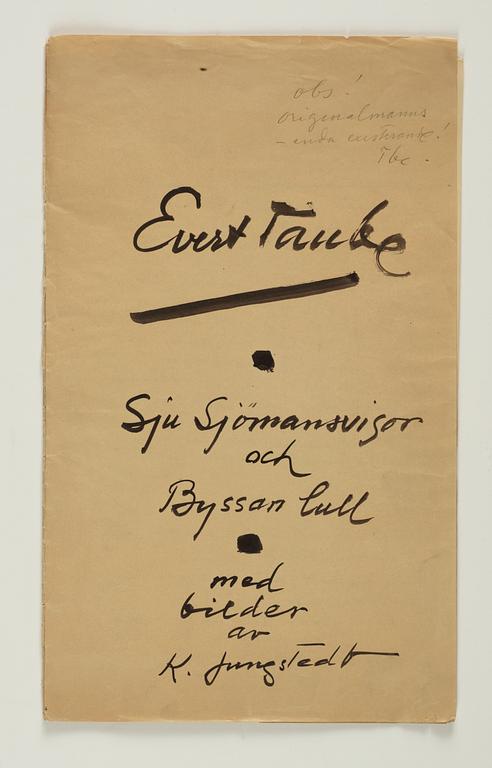 obs!
originalmanus
– enda existerande!
Tbe.
Evert Taube
Sju Sjömansvisor
och
Byssan lull
med
bilder
av
K. Jungstedt